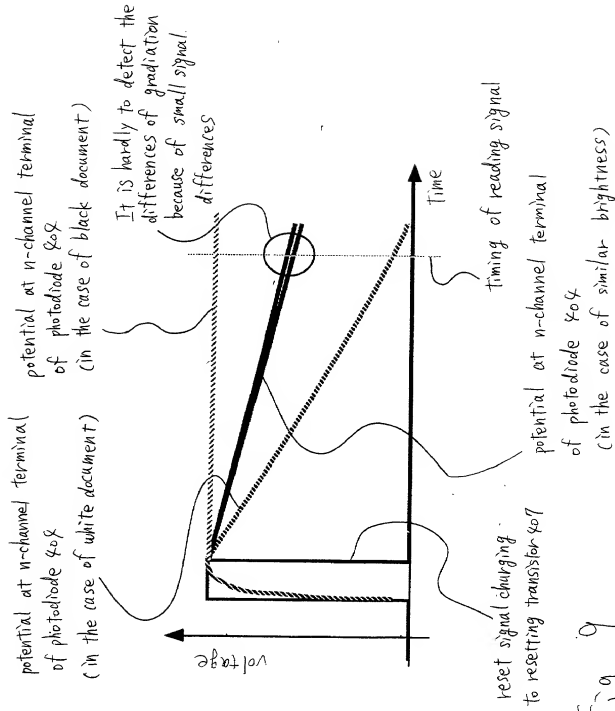 potential at n-channel terminal
of photodiode 404
(in the case of white document)
potential at n-channel terminal
of photodiode 404
(in the case of black document)
It is hardly to detect the
differences of gradiation
because of small signal.
differences
voltage
Time
reset signal charging
to resetting transistor 407
potential at n-channel terminal
of photodiode 404
(in the case of similar brightness)
timing of reading signal
Fig 9